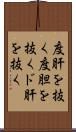 度肝を抜
く度胆を
抜くド肝
を抜く